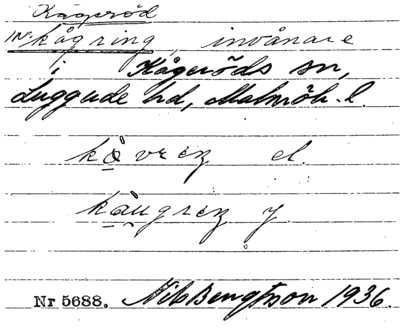 Kågeröd
INr kågring, invånare
i Kågeröds sn,
Luggude hd, Malmöh. l.
kåvreŋ el.
kăugreŋ y
Nr 5688. Nils Bengtsson 1936.